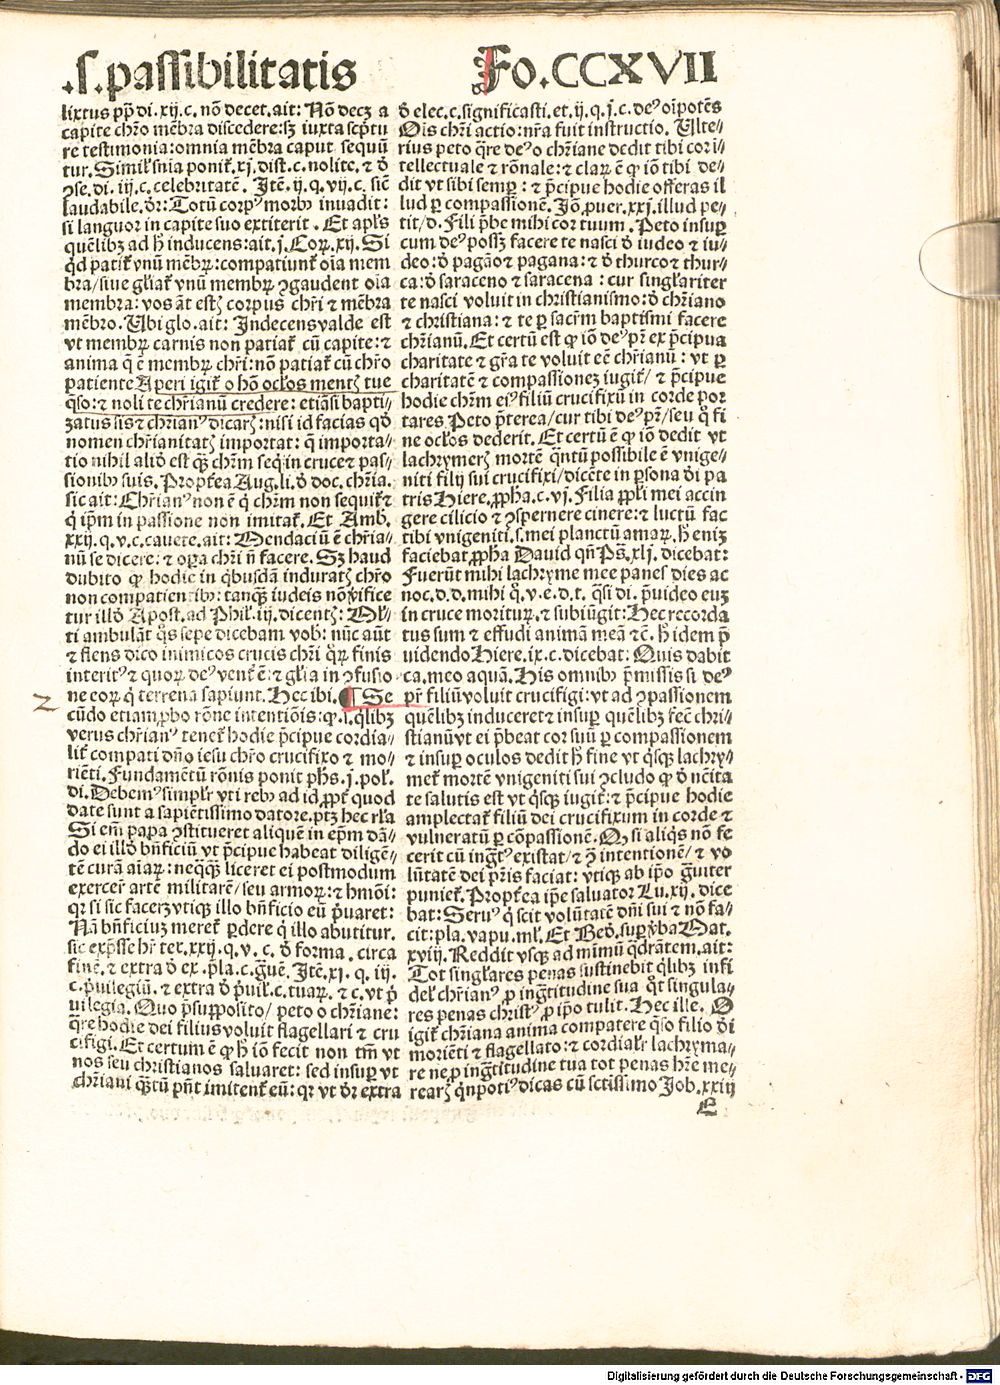 .s.passibilitatis
Fo.CCXVII
lixtus pp̄ di.xij.c. nō decet.ait: Nō decꝫ a
capite chr̄o mēbra discedere:sꝫ iuxta scp̄tu
re testimonia:omnia mēbra caput sequū
tur. Simił snīa poniť.xj.dist.c.nolite. ⁊ ð
ꝯse.di. iij.c.celebritatē. Jtē.ij.q.vij.c. sic̄
laudabile.ðr: Totū corpꝰ morbꝰ inuadit:
si languor in capite suo extiterit. Et apl̄s
quēlibꝫ ad h̄ inducens:ait.j.Corꝝ.xij. Si
qd̄ patiť vnū mēbꝝ:compatiunť oīa mem
bra/siue gl̄iať vnū membꝝ ꝯgaudent oīa
membra: vos āt estꝭ corpus chr̄i ⁊ mēbra
mēbro. Vbi glo.ait: Jndecensvalde est
vt membꝝ carnis non patiať cū capite:⁊
anima q̄ ē membꝝ chr̄i: non patiať cū chr̄o
patiente Aperi igiť o hō ocl̄os mentꝭ tue
q̄so:⁊ noli te chr̄ianū credere: etiāsi bapti-
zatus sis ⁊ chr̄ianꝰ dicarꝭ: nisi id facias qð
nomen chr̄ianitatꝭ importat: q̄ importa-
tio nihil alið est q̄ꝫ chr̄m seq̄ in cruce ⁊ pas-
sionibꝰ suis. Propťea Aug.li.ð doc. chr̄ia.
sic ait: Chr̄ianꝰ non ē q̇ chr̄m non sequiť ⁊
q̇ ip̄m in passione non imitať. Et Amb.
xxij.q.v.c.cauete.ait: Mendaciū ē chr̄ia-
nū se dicere: ⁊ oꝑa chr̄i n̄ facere. Sꝫ haud
dubito ꝙ hodie in q̇busdā induratꝭ chr̄o
non compatientibꝰ: tanq̄ꝫ iudeis nō vifice
tur illð Apost. ad Phił.iij.dicentꝭ: Ml̄-
ti ambulāt q̇s sepe dicebam vob̄: nūc aūt
⁊ flens dico inimicos crucis chr̄i q̇ꝝ finis
interitꝰ ⁊ quoꝝ deꝰ venť ē: ⁊ gl̄ia in ꝯfusio
ne eoꝝ q̇ terrena sapiunt. Hec ibi. ¶ Se
2
cūdo etiam ꝓbo rōne intentiōis: ꝙ.s.q̇libꝫ
verus chr̄ianꝰ teneť hodie p̄cipue cordia-
liť compati dn̄o iesu chr̄o crucifixo ⁊ mo-
riēti. Fundamētū rōnis ponit phs.j.poł.
di. Debemꝰ simpłr vti rebꝰ ad id ꝓpť quod
date sunt a sapiētissimo datore.ptꝫ hec rl̄a
Si em̄ papa ꝯstitueret aliquē in ep̄m dā-
do ei illð bn̄ficiū vt p̄cipue habeat diligē-
tē curā aīaꝝ: neq̄q̄ꝫ liceret ei postmodum
exercer̄ artē militarē/seu armoꝝ:⁊ hmōi:
qꝛ si sic facerꝫ vtiqꝫ illo bn̄ficio eū p̄uaret:
Nā bn̄ficiuꝫ mereť ꝑdere q̇ illo abutitur.
sic exp̄sse hr̄ ter.xxij.q.v.c.ð forma.circa
finē.⁊ extra ð ex.p̄la.c.gūe. Jtē.xj.q.iij.
c.p̄uilegiū.⁊ extra ð p̄uił.c.tuaꝝ.⁊ c.vt p̄
uilegia. Quo p̄supposito/ peto o chr̄iane:
q̄re hodie dei filius voluit flagellari ⁊ cru
cifigi. Et certum ē ꝙ h̄ iō fecit non tm̄ vt
nos seu christianos saluaret: sed insuꝑ vt
chr̄iani q̄ꝫtū pn̄t imitenť eū: qꝛ vt ðr extra
ð elec.c.significasti.et.ij.q.j.c.deꝰ oīpotēs
Ois chr̄i actio:nr̄a fuit instructio. Vlte-
rius peto q̄re deꝰ o chr̄iane dedit tibi cor i-
tellectuale ⁊ rōnale: ⁊ claꝝ ē ꝙ iō tibi de-
dit vt sibi semꝑ: ⁊ p̄cipue hodie offeras il
lud ꝑ compassionē. Jō puer.xxj.illud pe-
tit/d. Fili p̄be mihi cor tuum. Peto insuꝑ
cum deꝰ possꝫ facere te nasci ð iudeo ⁊ iu-
deo: ð pagāo ⁊ pagana: ⁊ ð thurco ⁊ thur-
ca: ð saraceno ⁊ saracena: cur singl̄ariter
te nasci voluit in christianismo: ð chr̄iano
⁊ christiana: ⁊ te ꝑ sacr̄m baptismi facere
chr̄ianū. Et certū est ꝙ iō deꝰ pr̄ ex p̄cipua
charitate ⁊ gr̄a te voluit eē chr̄ianū: vt ꝑ
charitatē ⁊ compassioneꝫ iugiť/ ⁊ p̄cipue
hodie chr̄m eiꝰ filiū crucifixū in corde por
tares Peto p̄terea/cur tibi deꝰ pr̄/ seu q̊ fi
ne ocl̄os dederit. Et certū ē ꝙ iō dedit vt
lachrymerꝭ mortē q̄ntū possibile ē vnige-
niti filij sui crucifixi/dicēte in ꝑsona ði pa
tris Hiere.ꝓpha.c.vj. Filia ppl̄i mei accin
gere cilicio ⁊ ꝯspernere cinere:⁊ luctū fac
tibi vnigeniti.s.mei planctū amaꝝ.h̄ eniꝫ
faciebat ꝓpha David qn̄ Ps̄.xlj.dicebat:
Fuerūt mihi lachryme mee panes dies ac
noc.d.d.mihi q.v.e.d.t. q̄si di.p̄uideo euꝫ
in cruce morituꝝ. ⁊ subiūgit: Hec recorda
tus sum ⁊ effudi animā meā ⁊c̄. h̊ idem p̄
uidendo Hiere.ix.c.dicebat: Quis dabit
ca.meo aquā. His omnibꝰ p̄missis si deꝰ
pr̄ filiū voluit crucifigi: vt ad ꝯpassionem
quēlibꝫ induceret ⁊ insuꝑ quēlibꝫ fec̄ chri-
stianū vt ei p̄beat cor suū ꝑ compassionem
⁊ insuꝑ oculos dedit h̄ fine vt q̇sqꝫ lachry-
meť mortē vnigeniti sui ꝯcludo ꝙ ð nc̄ita
te salutis est vt q̇sqꝫ iugiť:⁊ p̄cipue hodie
amplectať filiū dei crucifixum in corde ⁊
vulneratū ꝑ cōpassionē. Q, si aliq̇s nō fe
cerit cū ingtꝰ existat/⁊ ꝯ̄ intentionē/ ⁊ vo
lūtatē dei pr̄is faciat: vtiqꝫ ab ip̄o grauiter
punieť. Propťea ip̄e saluator Lu.xij.dice
bat: Seruꝰ q̇ scit volūtatē dn̄i sui ⁊ nō fa-
cit: pla.vapu.ml̄. Et Beð.suꝑ v̄ba Mat.
xviij. Reddit vsqꝫ ad mīmū q̄drātem.ait:
Tot singl̄ares penas sustinebit q̇libꝫ infi
deł chr̄ianꝰ ꝓ ingtitudine sua q̊t singula-
res penas christꝰ ꝓ ip̄o tulit. Hec ille. O
igiť chr̄iana anima compatere q̄so filio ði
moriēti ⁊ flagellato: ⁊ cordialr̄ lachryma-
re ne ꝓ ingtitudine tua tot penas hr̄e me-
rearꝭ q̄npotiꝰ dicas cū sctissimo Job.xxiij
E
Digitalisierung gefördert durch die Deutsche Forschungsgemeinschaft - DFG